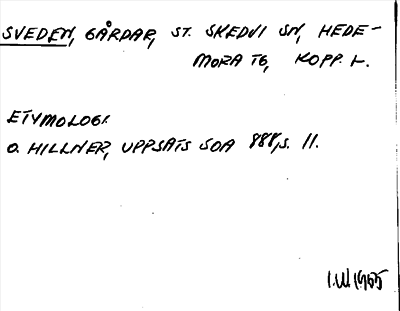 SVEDEN, GÅRDAR, ST. SKEDVI SN, HEDE-
MORA TG, KOPP. L.
ETYMOLOGI.
O. HILLNER, UPPSATS SOA 888, S. 11.
I.W. 1965